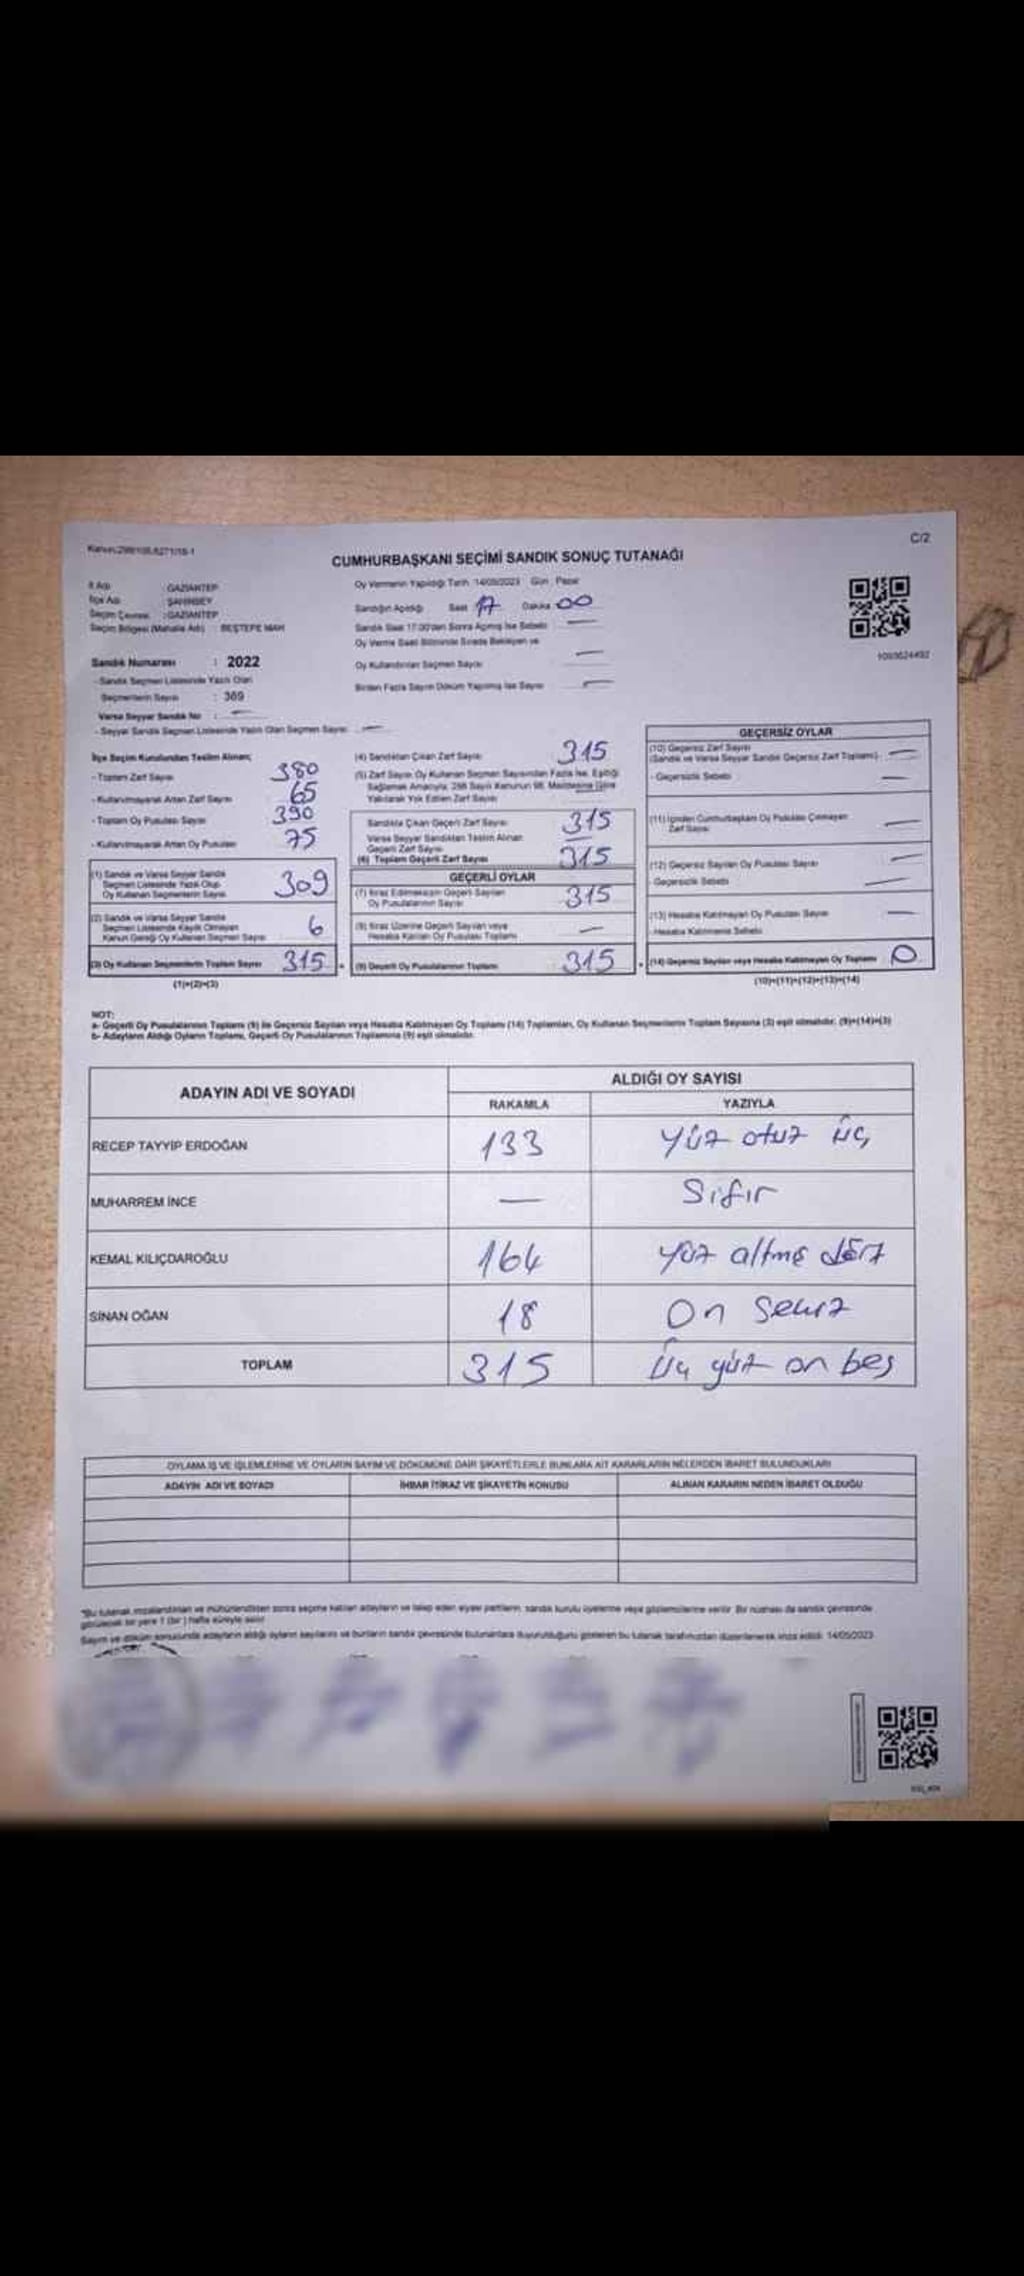 C/2
CUMHURBAŞKANI SEÇİMİ SANDIK SONUÇ TUTANAĞI
İl Adı : GAZİANTEP
İlçe Adı : ŞAHİNBEY
Seçim Çevresi : GAZİANTEP
Seçim Bölgesi (Mahalle Adı) : BEŞTEPE MAH
Sandık Numarası : 2022
- Sandık Seçmen Listesinde Yazılı Olan
Seçmenlerin Sayısı : 369
Varsa Seyyar Sandık No : —
- Seyyar Sandık Seçmen Listesinde Yazılı Olan Seçmen Sayısı —
Oy Vermenin Yapıldığı Tarih 14/05/2023 Gün Pazar
Sandığın Açıldığı Saat 17 Dakika 00
Sandık Saat 17.00'den Sonra Açılmış İse Sebebi —
Oy Verme Saati Bitiminde Sırada Bekleyen ve
Oy Kullandırılan Seçmen Sayısı —
Birden Fazla Sayım Döküm Yapılmış İse Sayısı —
1093624492
İlçe Seçim Kurulundan Teslim Alınan;
- Toplam Zarf Sayısı 380
- Kullanılmayarak Artan Zarf Sayısı 65
- Toplam Oy Pusulası Sayısı 390
- Kullanılmayarak Artan Oy Pusulası 75
(1) Sandık ve Varsa Seyyar Sandık
Seçmen Listesinde Yazılı Olup
Oy Kullanan Seçmenlerin Sayısı 309
(2) Sandık ve Varsa Seyyar Sandık
Seçmen Listesinde Kayıtlı Olmayan
Kanun Gereği Oy Kullanan Seçmen Sayısı 6
(3) Oy Kullanan Seçmenlerin Toplam Sayısı 315
(1)+(2)=(3)
(4) Sandıktan Çıkan Zarf Sayısı 315
(5) Zarf Sayısı Oy Kullanan Seçmen Sayısından Fazla İse, Eşitliği
Sağlamak Amacıyla, 298 Sayılı Kanunun 98. Maddesine Göre
Yakılarak Yok Edilen Zarf Sayısı —
Sandıkta Çıkan Geçerli Zarf Sayısı 315
Varsa Seyyar Sandıktan Teslim Alınan
Geçerli Zarf Sayısı —
(6) Toplam Geçerli Zarf Sayısı 315
GEÇERLİ OYLAR
(7) İtiraz Edilmeksizin Geçerli Sayılan
Oy Pusulalarının Sayısı 315
(8) İtiraz Üzerine Geçerli Sayılan veya
Hesaba Katılan Oy Pusulası Toplamı —
(9) Geçerli Oy Pusulalarının Toplamı 315
GEÇERSİZ OYLAR
(10) Geçersiz Zarf Sayısı
(Sandık ve Varsa Seyyar Sandık Geçersiz Zarf Toplamı) —
- Geçersizlik Sebebi —
(11) İçinden Cumhurbaşkanı Oy Pusulası Çıkmayan
Zarf Sayısı —
(12) Geçersiz Sayılan Oy Pusulası Sayısı —
- Geçersizlik Sebebi —
(13) Hesaba Katılmayan Oy Pusulası Sayısı —
- Hesaba Katılmama Sebebi
(14) Geçersiz Sayılan veya Hesaba Katılmayan Oy Toplamı 0
(10)+(11)+(12)+(13)=(14)
NOT:
a- Geçerli Oy Pusulalarının Toplamı (9) ile Geçersiz Sayılan veya Hesaba Katılmayan Oy Toplamı (14) Toplamları, Oy Kullanan Seçmenlerin Toplam Sayısına (3) eşit olmalıdır. (9)+(14)=(3)
b- Adayların Aldığı Oyların Toplamı, Geçerli Oy Pusulalarının Toplamına (9) eşit olmalıdır.
ADAYIN ADI VE SOYADI ALDIĞI OY SAYISI
RAKAMLA YAZIYLA
RECEP TAYYİP ERDOĞAN 133 Yüz otuz üç
MUHARREM İNCE — Sıfır
KEMAL KILIÇDAROĞLU 164 Yüz altmış dört
SİNAN OĞAN 18 On Sekiz
TOPLAM 315 Üç yüz on beş
OYLAMA İŞ VE İŞLEMLERİNE VE OYLARIN SAYIM VE DÖKÜMÜNE DAİR ŞİKAYETLERLE BUNLARA AİT KARARLARIN NELERDEN İBARET BULUNDUKLARI
ADAYIN ADI VE SOYADI İHBAR İTİRAZ VE ŞİKAYETİN KONUSU ALINAN KARARIN NEDEN İBARET OLDUĞU
*Bu tutanak imzalandıktan ve mühürlendikten sonra seçime katılan adayların ve talep eden siyasi partilerin, sandık kurulu üyelerine veya gözlemcilerine verilir. Bir nüshası da sandık çevresinde
görülecek bir yere 1 (bir) hafta süreyle asılır.
Sayım ve döküm sonucunda adayların aldığı oyların sayılarını ve bunların sandık çevresinde bulunanlara duyurulduğunu gösteren bu tutanak tarafımızdan düzenlenerek imza edildi. 14/05/2023